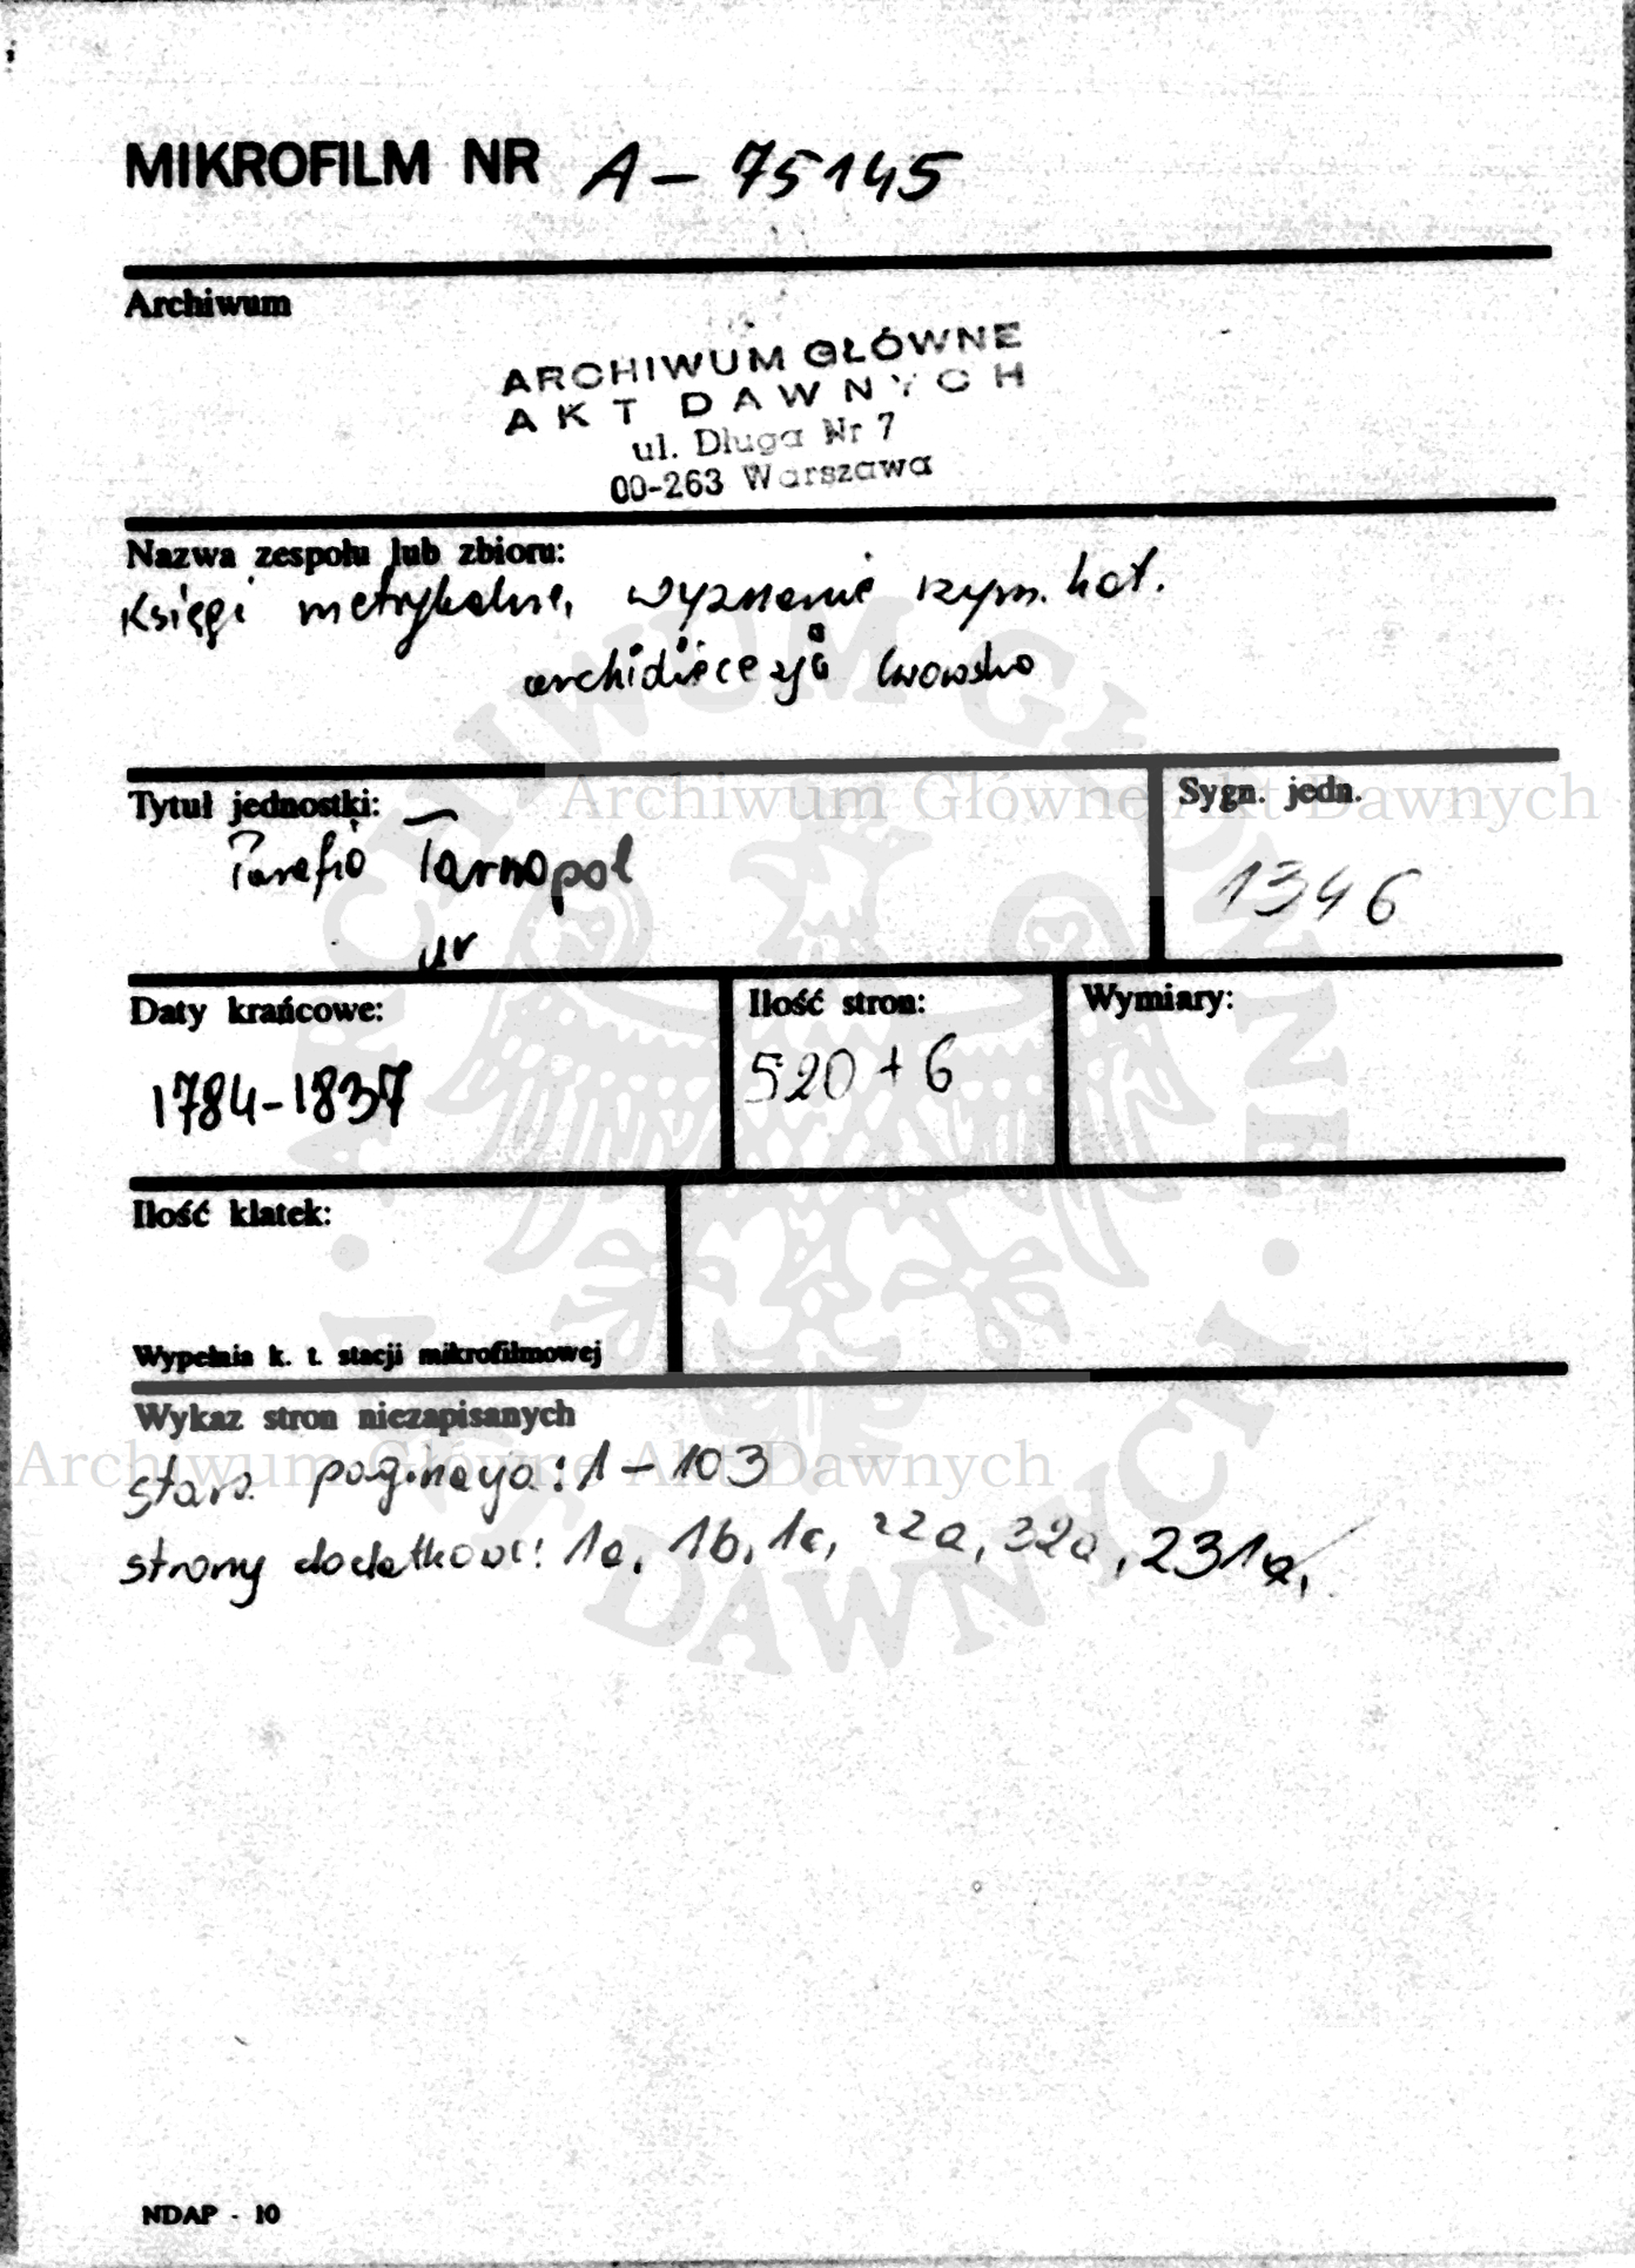 MIKROFILM NR A - 75145
Archiwum
ARCHIWUM GŁÓWNE
AKT DAWNYCH
ul. Długa Nr 7
00-263 Warszawa
Nazwa zespołu lub zbioru:
Księgi metrykalne, wyznanie rzym. kat.
archidiecezja lwowska
Tytuł jednostki:
Parafia Tarnopol
ur
Sygn. jedn.
1346
Daty krańcowe:
1784-1837
Ilość stron:
520 + 6
Wymiary:
Ilość klatek:
Wypełnia k. t. stacji mikrofilmowej
Wykaz stron niezapisanych
stara paginacja: 1 - 103
strony dodatkowe: 1a, 1b, 1c, 22a, 32a, 231a,
NDAP - 10
Archiwum Główne Akt Dawnych
Archiwum Główne Akt Dawnych
ARCHIWUM GŁÓWNE AKT DAWNYCH